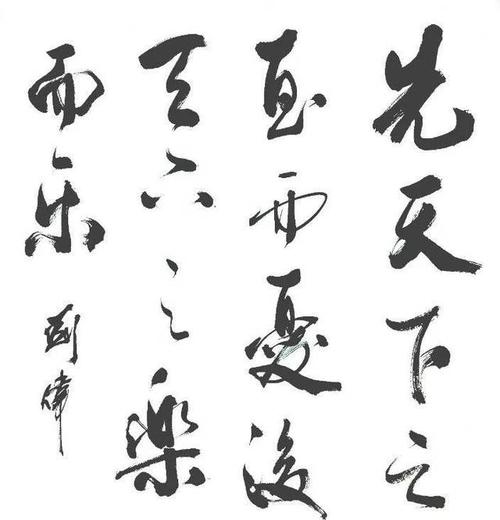 先天下之
憂而憂後
天下之樂
而乐
劉偉